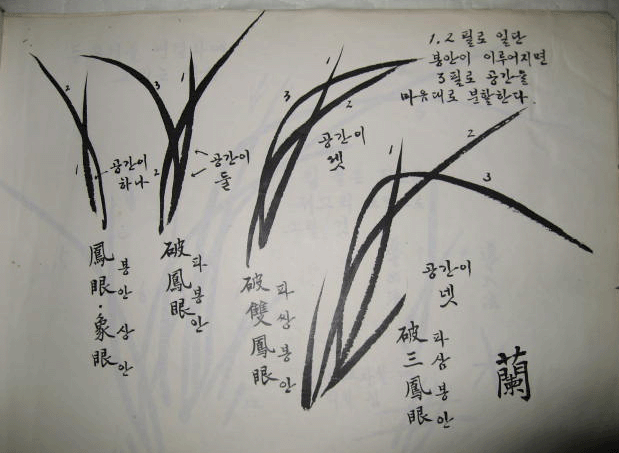 1.2 필로 일단
봉안이 이루어지면
3 필로 공간을
마음대로 분할한다.
2
1
공간이
하나
鳳眼·象眼
봉안상안
3
1
2
공간이
둘
破鳳眼
파봉안
3
1
2
공간이
넷
破雙鳳眼
파쌍봉안
1
2
3
공간이
넷
破三鳳眼
파삼봉안
蘭